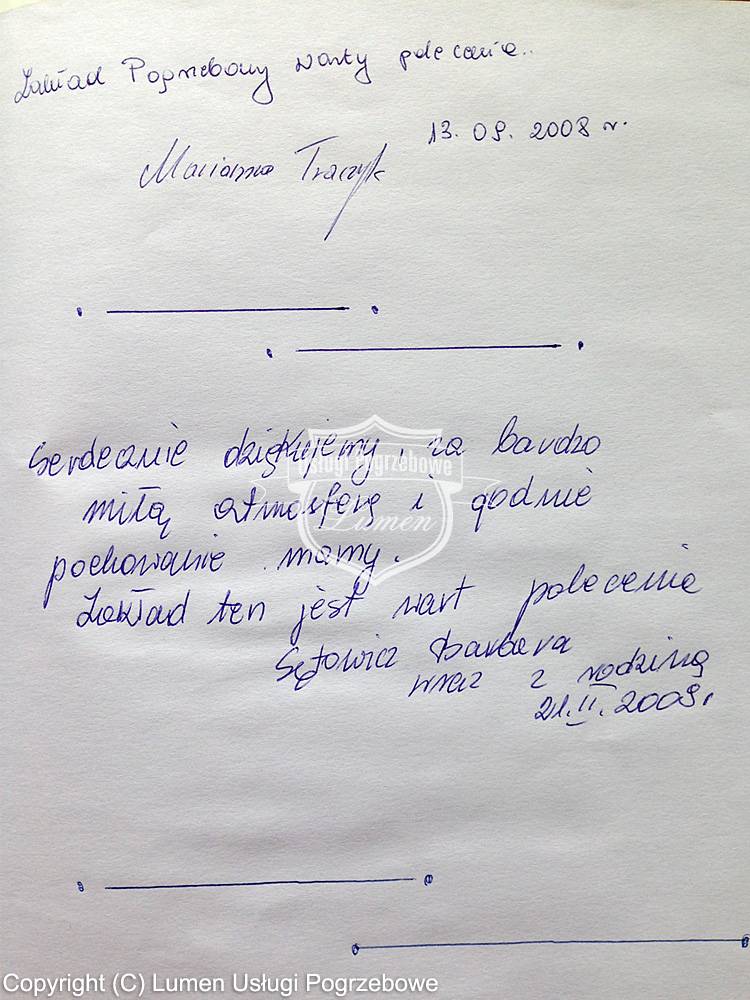 Zakład Pogrzebowy warty polecenia..
13. 09. 2008 r.
Marianna Traczyk
Serdecznie dziękujemy, za bardzo
miłą atmosferę i godnie
pochowanie mamy.
Usługi Pogrzebowe
Lumen
Zakład ten jest wart polecenia
Barbara
wraz z rodziną
21.II.2009r
Copyright (C) Lumen Usługi Pogrzebowe